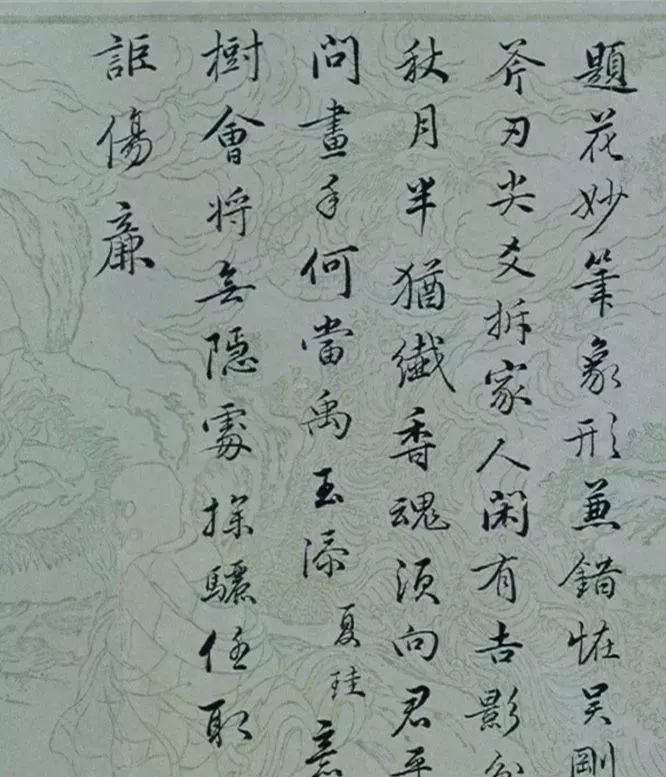 題花妙筆象形兼錯恠吴剛
斧刃尖爻拆家人閑有吉影分
秋月半猶纖香魂須向君平
問畫手何當禹玉添夏珪意
樹會將無隱處探驪任取
詎傷廉